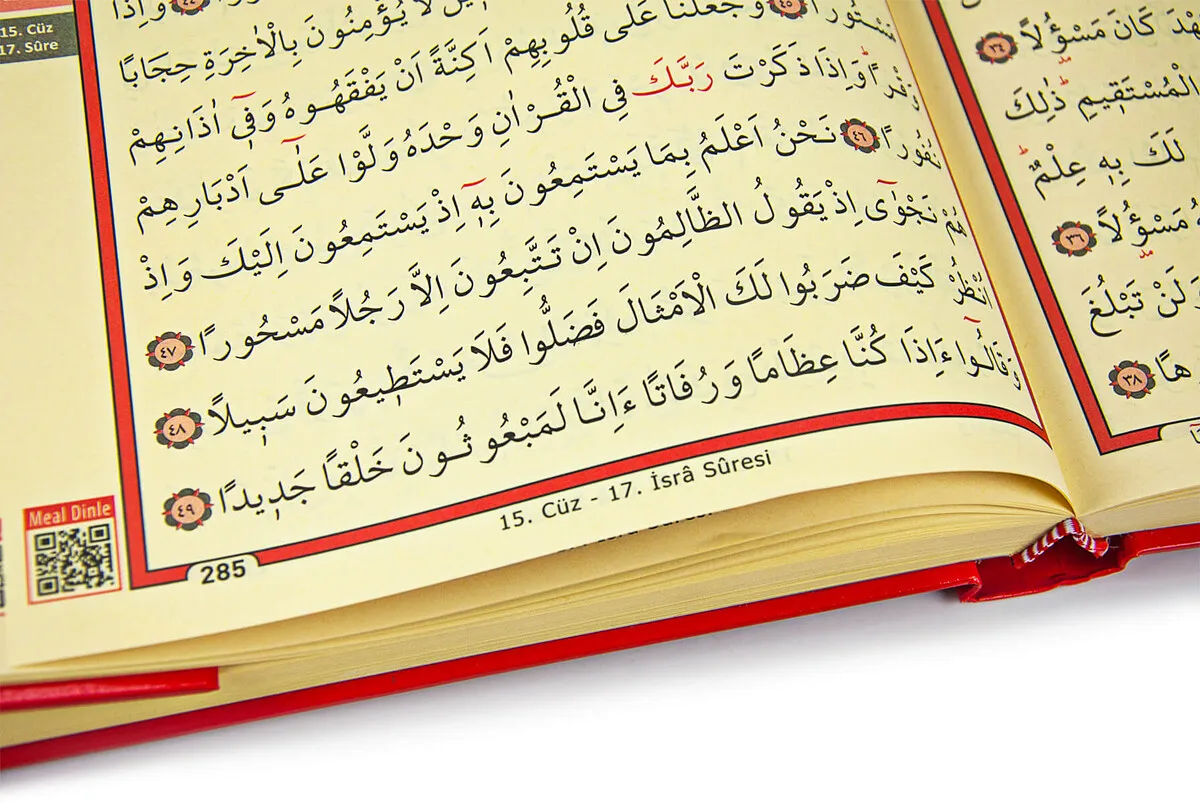 كَانَ مَسْؤُ۫لًا ٣٤
الْمُسْتَقٖيمِ ذٰلِكَ
لَكَ بِهٖ عِلْمٌ
مَسْؤُ۫لًا ٣٦
لَنْ تَبْلُغَ
٣٨
15. Cüz
17. Sûre
وَاِذَا
لَا يُؤْمِنُونَ بِالْاٰخِرَةِ حِجَابًا
مَسْتُورًا ٤٥ وَجَعَلْنَا عَلٰى قُلُوبِهِمْ اَكِنَّةً اَنْ يَفْقَهُوهُ وَفٖٓى اٰذَانِهِمْ
وَقْرًا وَاِذَا ذَكَرْتَ رَبَّكَ فِى الْقُرْاٰنِ وَحْدَهُ وَلَّوْا عَلٰٓى اَدْبَارِهِمْ
نُفُورًا ٤٦ نَحْنُ اَعْلَمُ بِمَا يَسْتَمِعُونَ بِهٖٓ اِذْ يَسْتَمِعُونَ اِلَيْكَ وَاِذْ
هُمْ نَجْوٰٓى اِذْ يَقُولُ الظَّالِمُونَ اِنْ تَتَّبِعُونَ اِلَّا رَجُلًا مَسْحُورًا ٤٧
اُنْظُرْ كَيْفَ ضَرَبُوا لَكَ الْاَمْثَالَ فَضَلُّوا فَلَا يَسْتَطٖيعُونَ سَبٖيلًا ٤٨
وَقَالُٓوا ءَاِذَا كُنَّا عِظَامًا وَرُفَاتًا ءَاِنَّا لَمَبْعُوثُونَ خَلْقًا جَدٖيدًا ٤٩
Meal Dinle
285
15. Cüz - 17. İsrâ Sûresi